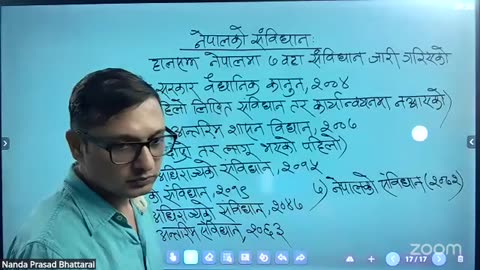 नेपालको संविधान:
हालसम्म नेपालमा ७ वटा संविधान जारी गरिएको
सरकार वैधानिक कानून, २००४
पहिलो लिखित संविधान तर कार्यान्वयनमा नआएको)
अन्तरिम शासन विधान, २००७
तर लागू भएको पहिलो)
अधिराज्यको संविधान, २०१५
संविधान, २०१९
७) नेपालको संविधान (२०७२)
अधिराज्यको संविधान, २०४७
अन्तरिम संविधान, २०६३
17/17
zoom
Nanda Prasad Bhattarai